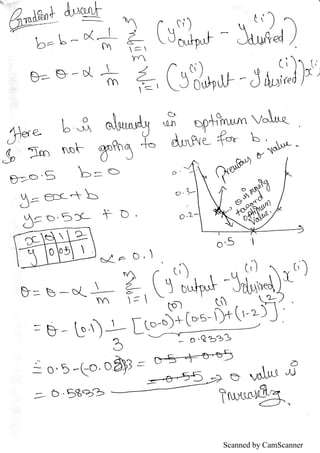 Gradient disant
b = b - α 1/m Σ(i=1 to m) (y^(i)output - y^(i)desired)
θ = θ - α 1/m Σ(i=1 to m) (y^(i)output - y^(i)desired) x^(i)
Here b is already in optimum value.
So Im not going to derive for b.
θ=0.5 b=0
y = θx + b
y = 0.5x + 0.
x 0 1 2
y 0 0.5 1
Previous θ value.
θ is moving toward optimum value.
0.3
0.2
0.5 1
α = 0.1.
θ = θ - α 1/m Σ(i=1 to m) (y^(i)output - y^(i)desired) x^(i)
= θ - (0.1) 1/3 [(0-0)^(0) + (0.5-1)^(1) + (1-2)^(2)]
- 0.8333
= 0.5 - (-0.0833) = 0.5 + 0.05
= 0.55 → θ value is
= 0.5833 increasing.
Scanned by CamScanner